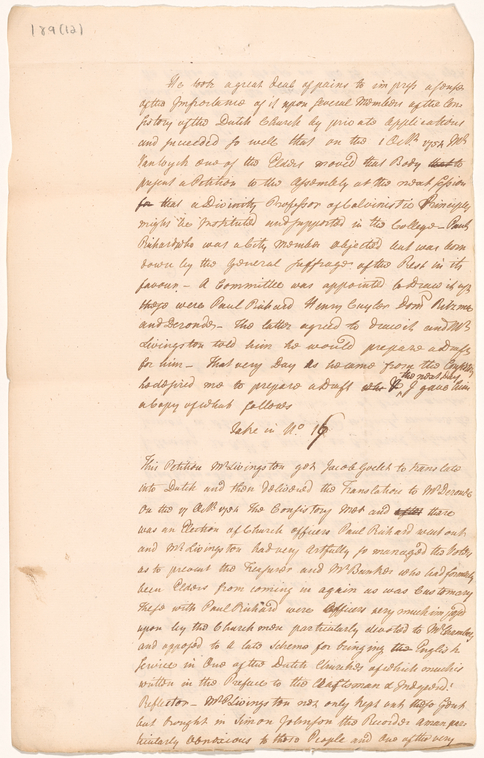 189(12)
He took a great deal of pains to impress a sense
of the Importance of it upon several Members of the Con
sistory of the Dutch Church by private applications
and succeeded so well that on the 1 Octbr 1754 Mr
Vanwyck one of the Elders moved that Body that to
present a Petition to the Assembly at the next session
for that a Divinity Professor of Calvinistic Principles
might be Instituted and supported in the College – Paul
Richard who was a City Member objected but was born
down by the General Suffrage of the Rest in its
favour – A Committee was appointed to Draw it up
these were Paul Richard Henry Cuyler Dom Ritzma
and Deronde – the latter agreed to draw it and Mr
Livingston told him he would prepare a Draft
for him – That very Day as he came from the
he desired me to prepare a Draft & the next day I gave him
a Copy of what follows
Take in No 16
This Petition Mr Livingston got Jacob Goelet to translate
into Dutch and then delivered the Translation to Mr Deronde
On the 17 Octbr 1754 the Consistory Met and after there
was an Election of Church officers Paul Richard went out
and Mr Livingston had very artfully so managed the Votes
as to prevent the Treasurer and Mr Bancker who had formerly
been Elders from coming in again as was Customary
These with Paul Richard were Officers very much imposed
upon by the Church men particularly devoted to Mr Chambers
and opposed to a late Scheme for bringing the English
Service in One of the Dutch Churches of which much is
written in the Preface to the Craftsman & Independt
Reflector – Mr Livingston not only kept out these Gent
but brought in Simon Johnson the Recorder a man par
ticularly to those People and One of the very